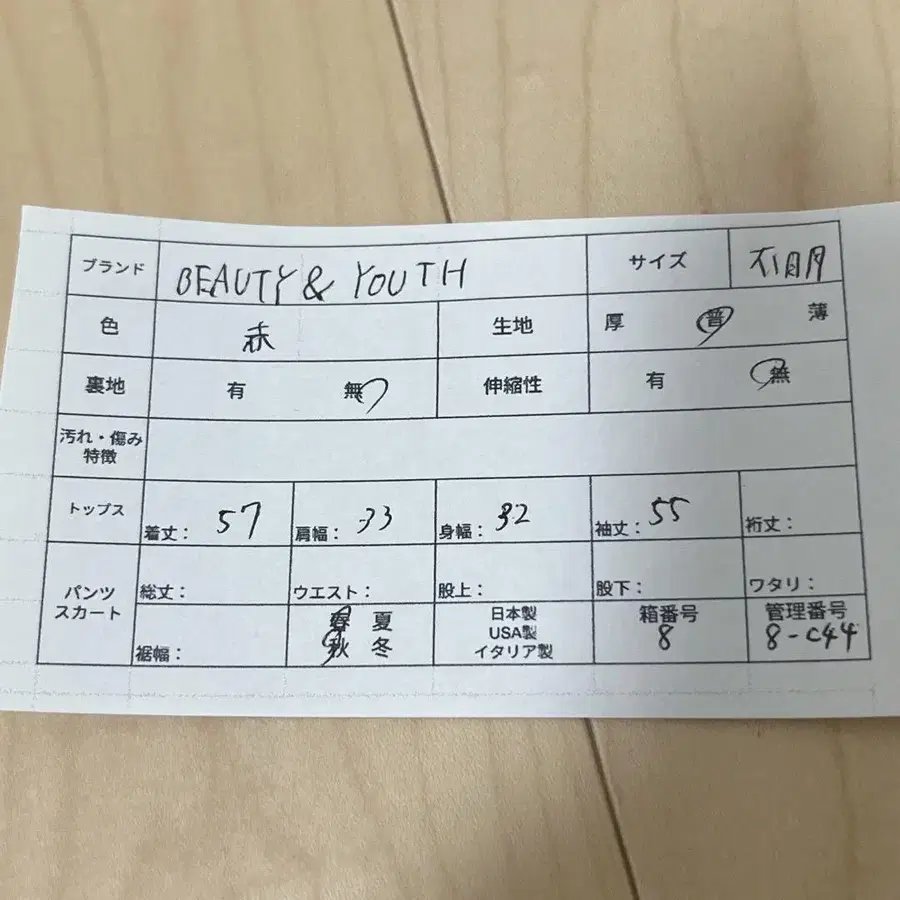 ブランド BEAUTY & YOUTH サイズ 不明
色 赤 生地 厚 普 薄
裏地 有 無 伸縮性 有 無
汚れ・傷み
特徴
トップス 着丈： 57 肩幅： 33 身幅： 32 袖丈： 55 裄丈：
パンツ
スカート
総丈： ウエスト： 股上： 股下： ワタリ：
裾幅：
春 夏
秋 冬
日本製
USA製
イタリア製
箱番号
8
管理番号
8-C44